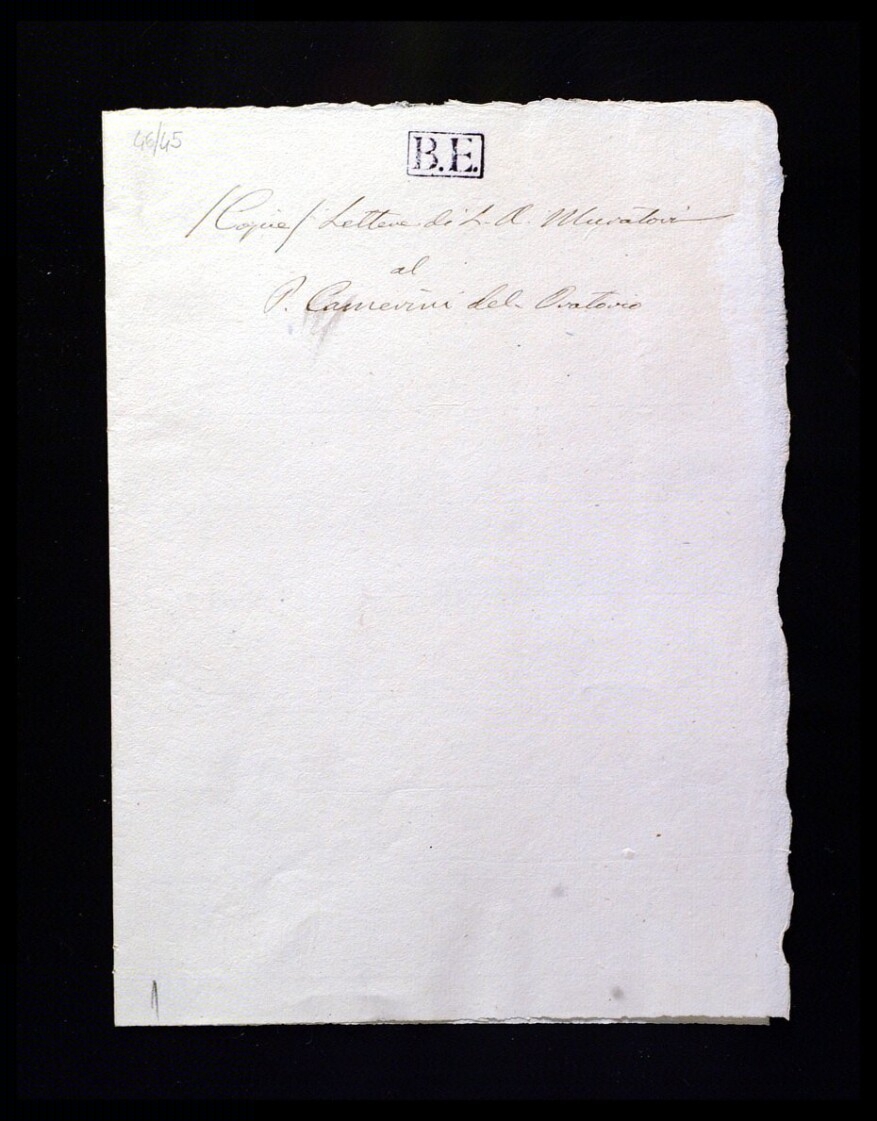 46/45
B.E.
/Copie/ Lettere di L. A. Muratori
al
P. Camerini dell'Oratorio
1